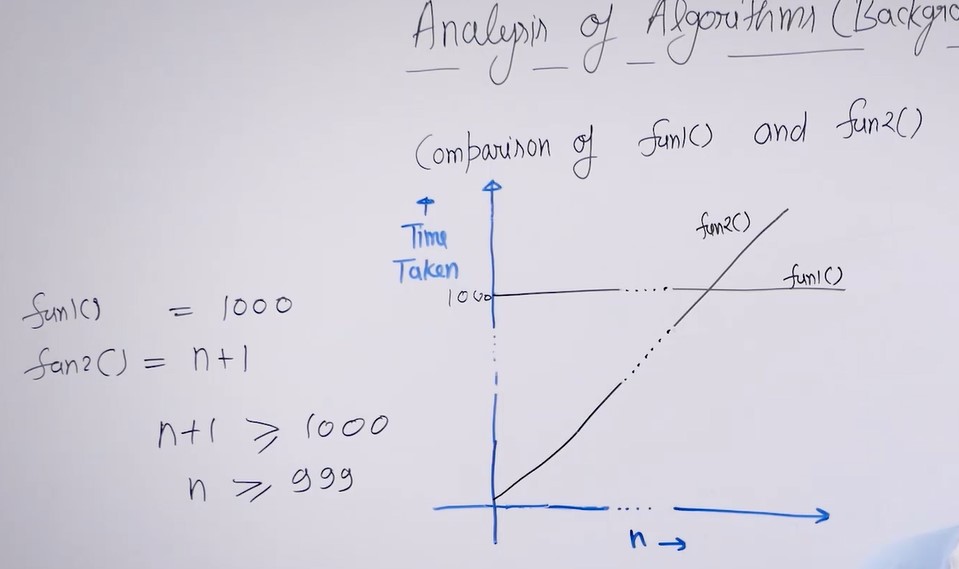 Analysis of Algorithms (Backgro
Comparison of fun1() and fun2()
Time
Taken
fun2()
fun1()
1000
fun1() = 1000
fun2() = n+1
n+1 ≥ 1000
n ≥ 999
n →